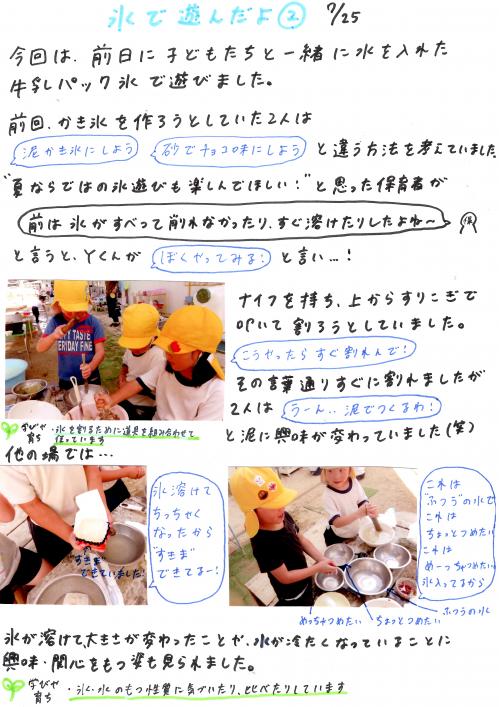 氷で遊んだよ② 7/25
今回は、前日に子どもたちと一緒に水を入れた
牛乳パック氷で遊びました。
前回、かき氷を作ろうとしていた2人は
泥かき氷にしよう 砂でチョコ味にしよう と違う方法を考えていました
"夏ならではの氷遊びも楽しんでほしい!"と思った保育者が
前は氷がすべって削れなかったり、すぐ溶けたりしたよね〜 保
と言うと、Yくんが ぼくやってみる! と言い…!
ナイフを持ち、上からすりこぎで
叩いて割ろうとしていました。
こうやったらすぐ割れんで!
その言葉通りすぐに割れましたが
2人は うーん..泥でつくるわ!
と泥に興味が変わっていました(笑)
学びや育ち ・氷を割るために道具を組み合わせて
使っています
他の場では…
氷溶けて
ちっちゃく
なったから
"すきま"
できてるー!
"すきま"
できていました!
これは
"ふつう"の水で
これは
ちょっとつめたい
これは
めーっちゃつめたい
氷入ってるから
めっちゃつめたい ちょっとつめたい ふつうの水
氷が溶けて大きさが変わったことや、水が冷たくなっていることに
興味・関心をもつ姿も見られました。
学びや育ち ・氷・水のもつ性質に気づいたり、比べたりしています